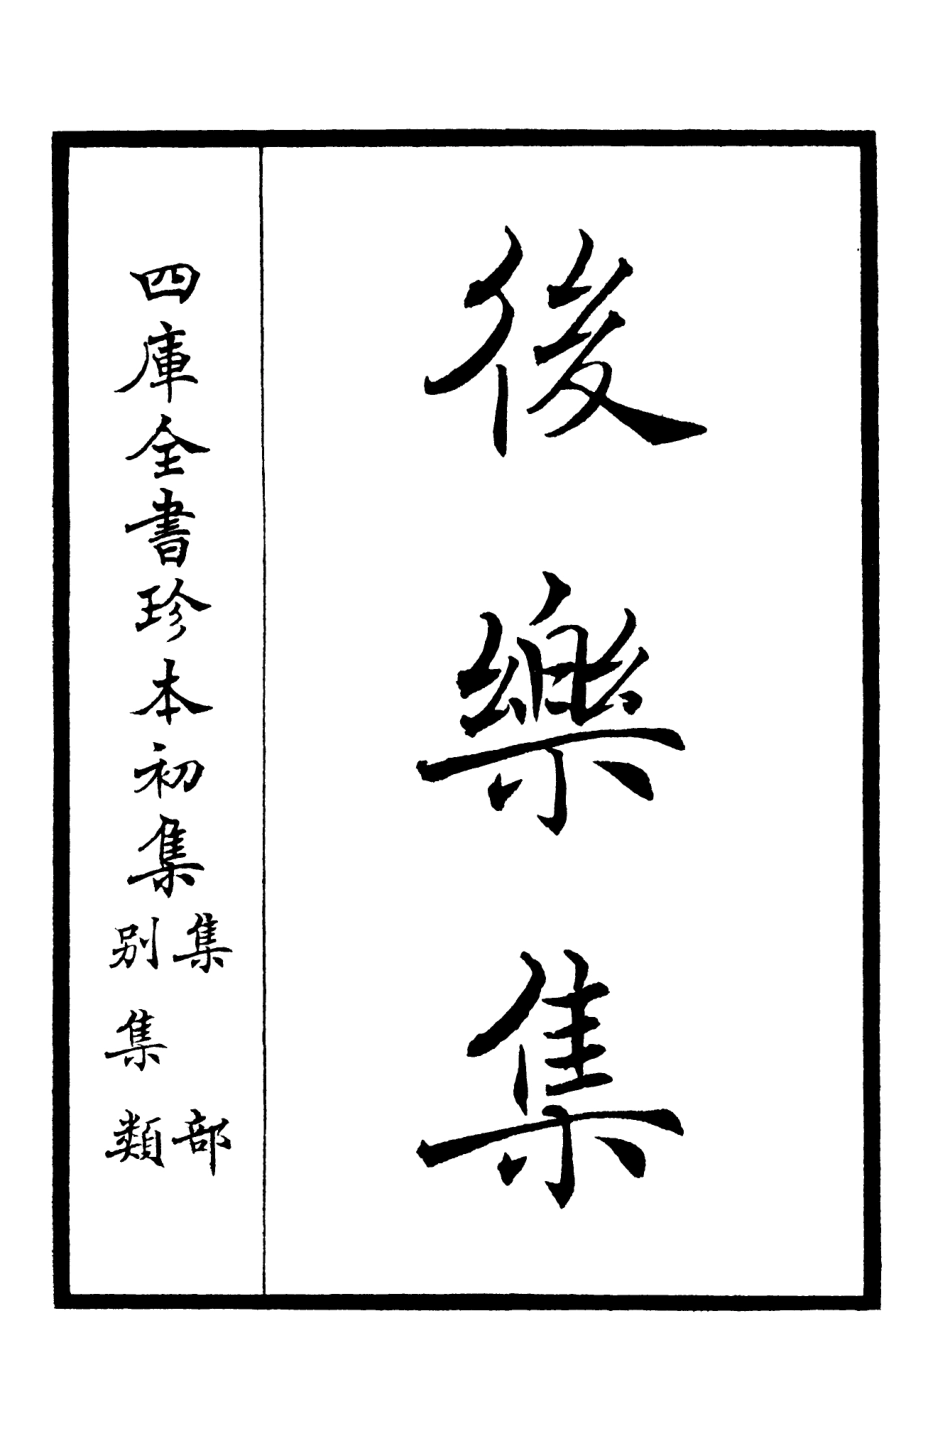 後樂集
四庫全書珍本初集
集部
別集類